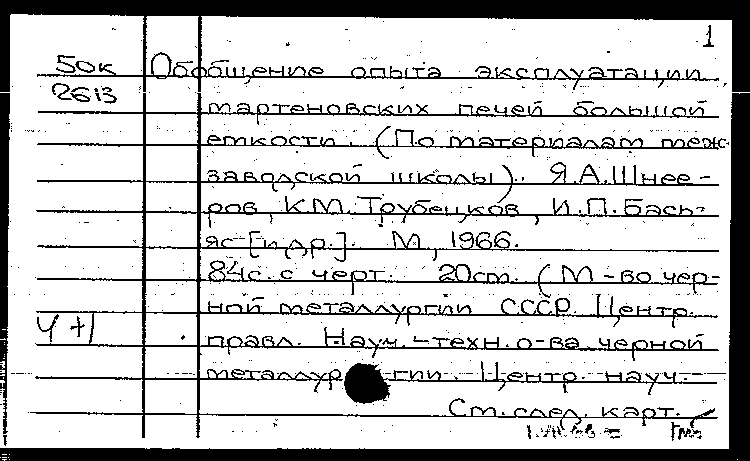 1
50к Обобщение опыта эксплуатации
2613 мартеновских печей большой
емкости. (По материалам меж-
заводской школы). Я.А.Шнее-
ров, К.М.Трубецков, И.П.Бась-
яс [и др.]. М., 1966.
84с. с черт. 20см. (М-во чер-
ной металлургии СССР. Центр.
Ч+1 правл. Науч.-техн. о-ва черной
металлургии. Центр. науч.-
См. след. карт.